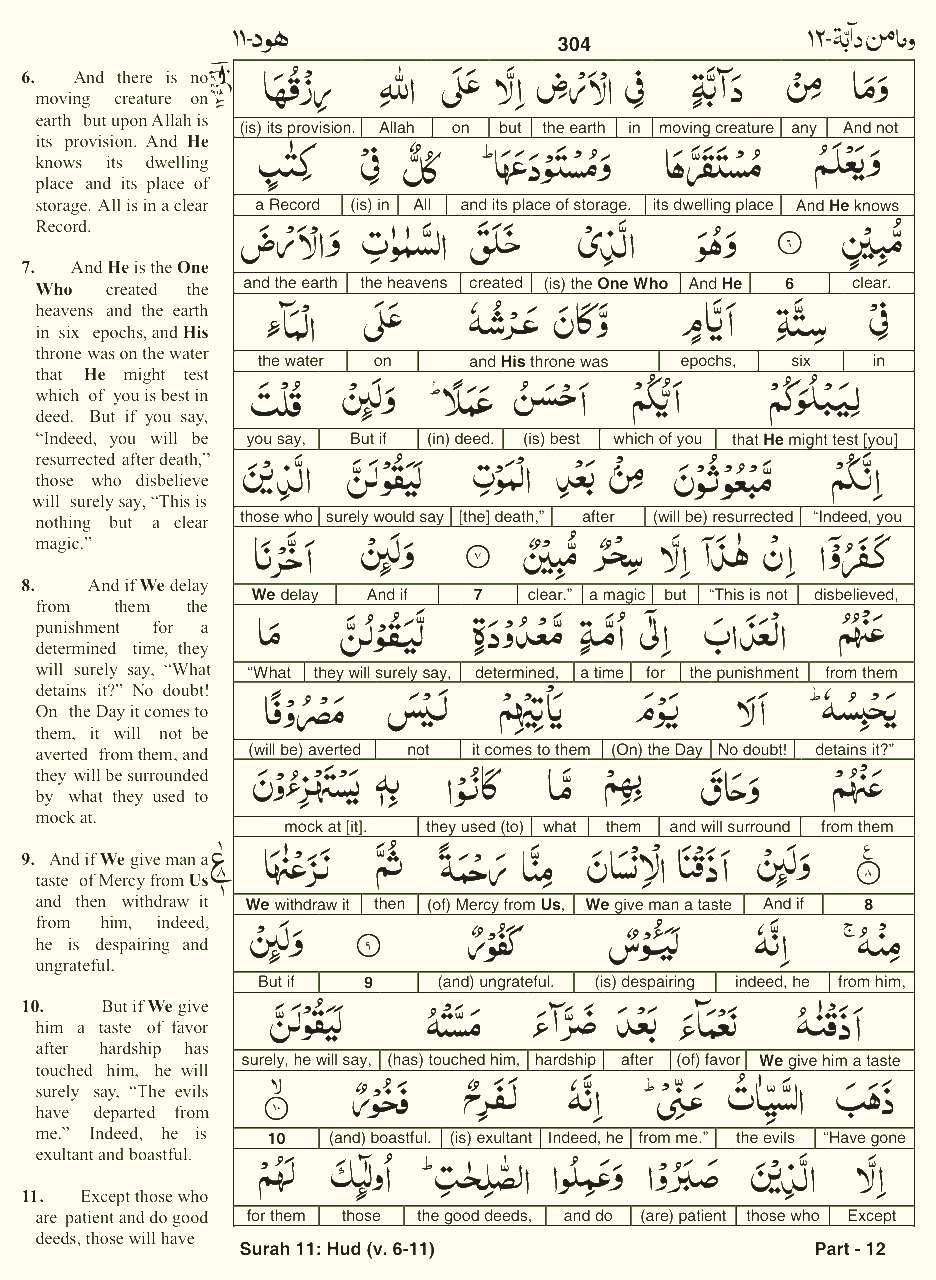 هود-١١ 304 ومامن دآبة-١٢
6. And there is no
moving creature on
earth but upon Allah is
its provision. And He
knows its dwelling
place and its place of
storage. All is in a clear
Record.
7. And He is the One
Who created the
heavens and the earth
in six epochs, and His
throne was on the water
that He might test
which of you is best in
deed. But if you say,
“Indeed, you will be
resurrected after death,”
those who disbelieve
will surely say, “This is
nothing but a clear
magic.”
8. And if We delay
from them the
punishment for a
determined time, they
will surely say, “What
detains it?” No doubt!
On the Day it comes to
them, it will not be
averted from them, and
they will be surrounded
by what they used to
mock at.
9. And if We give man a
taste of Mercy from Us
and then withdraw it
from him, indeed,
he is despairing and
ungrateful.
10. But if We give
him a taste of favor
after hardship has
touched him, he will
surely say, “The evils
have departed from
me.” Indeed, he is
exultant and boastful.
11. Except those who
are patient and do good
deeds, those will have
وَمَا مِنْ دَآبَّةٍ فِي الْاَرْضِ اِلَّا عَلَى اللّٰهِ رِزْقُهَا
(is) its provision. | Allah | on | but | the earth | in | moving creature | any | And not
وَيَعْلَمُ مُسْتَقَرَّهَا وَمُسْتَوْدَعَهَا ؕ كُلٌّ فِيْ كِتٰبٍ
a Record | (is) in | All | and its place of storage. | its dwelling place | And He knows
مُّبِيْنٍ ٦ وَهُوَ الَّذِيْ خَلَقَ السَّمٰوٰتِ وَالْاَرْضَ
and the earth | the heavens | created | (is) the One Who | And He | 6 | clear.
فِيْ سِتَّةِ اَيَّامٍ وَّكَانَ عَرْشُهٗ عَلَى الْمَآءِ
the water | on | and His throne was | epochs, | six | in
لِيَبْلُوَكُمْ اَيُّكُمْ اَحْسَنُ عَمَلًا ؕ وَلَئِنْ قُلْتَ
you say, | But if | (in) deed. | (is) best | which of you | that He might test [you]
اِنَّكُمْ مَّبْعُوْثُوْنَ مِنْۢ بَعْدِ الْمَوْتِ لَيَقُوْلَنَّ الَّذِيْنَ
those who | surely would say | [the] death,” | after | (will be) resurrected | “Indeed, you
كَفَرُوْٓا اِنْ هٰذَآ اِلَّا سِحْرٌ مُّبِيْنٌ ٧ وَلَئِنْ اَخَّرْنَا
We delay | And if | 7 | clear.” | a magic | but | “This is not | disbelieved,
عَنْهُمُ الْعَذَابَ اِلٰٓى اُمَّةٍ مَّعْدُوْدَةٍ لَّيَقُوْلُنَّ مَا
“What | they will surely say, | determined, | a time | for | the punishment | from them
يَحْبِسُهٗ ؕ اَلَا يَوْمَ يَاْتِيْهِمْ لَيْسَ مَصْرُوْفًا
(will be) averted | not | it comes to them | (On) the Day | No doubt! | detains it?”
عَنْهُمْ وَحَاقَ بِهِمْ مَّا كَانُوْا بِهٖ يَسْتَهْزِءُوْنَ
mock at [it]. | they used (to) | what | them | and will surround | from them
٨ وَلَئِنْ اَذَقْنَا الْاِنْسَانَ مِنَّا رَحْمَةً ثُمَّ نَزَعْنٰهَا
We withdraw it | then | (of) Mercy from Us, | We give man a taste | And if | 8
مِنْهُ ۚ اِنَّهٗ لَيَـُٔوْسٌ كَفُوْرٌ ٩ وَلَئِنْ
But if | 9 | (and) ungrateful. | (is) despairing | indeed, he | from him,
اَذَقْنٰهُ نَعْمَآءَ بَعْدَ ضَرَّآءَ مَسَّتْهُ لَيَقُوْلَنَّ
surely, he will say, | (has) touched him, | hardship | after | (of) favor | We give him a taste
ذَهَبَ السَّيِّاٰتُ عَنِّيْ ؕ اِنَّهٗ لَفَرِحٌ فَخُوْرٌ ۙ ١٠
10 | (and) boastful. | (is) exultant | Indeed, he | from me.” | the evils | “Have gone
اِلَّا الَّذِيْنَ صَبَرُوْا وَعَمِلُوا الصّٰلِحٰتِ ؕ اُولٰٓئِكَ لَهُمْ
for them | those | the good deeds, | and do | (are) patient | those who | Except
Surah 11: Hud (v. 6-11) Part - 12